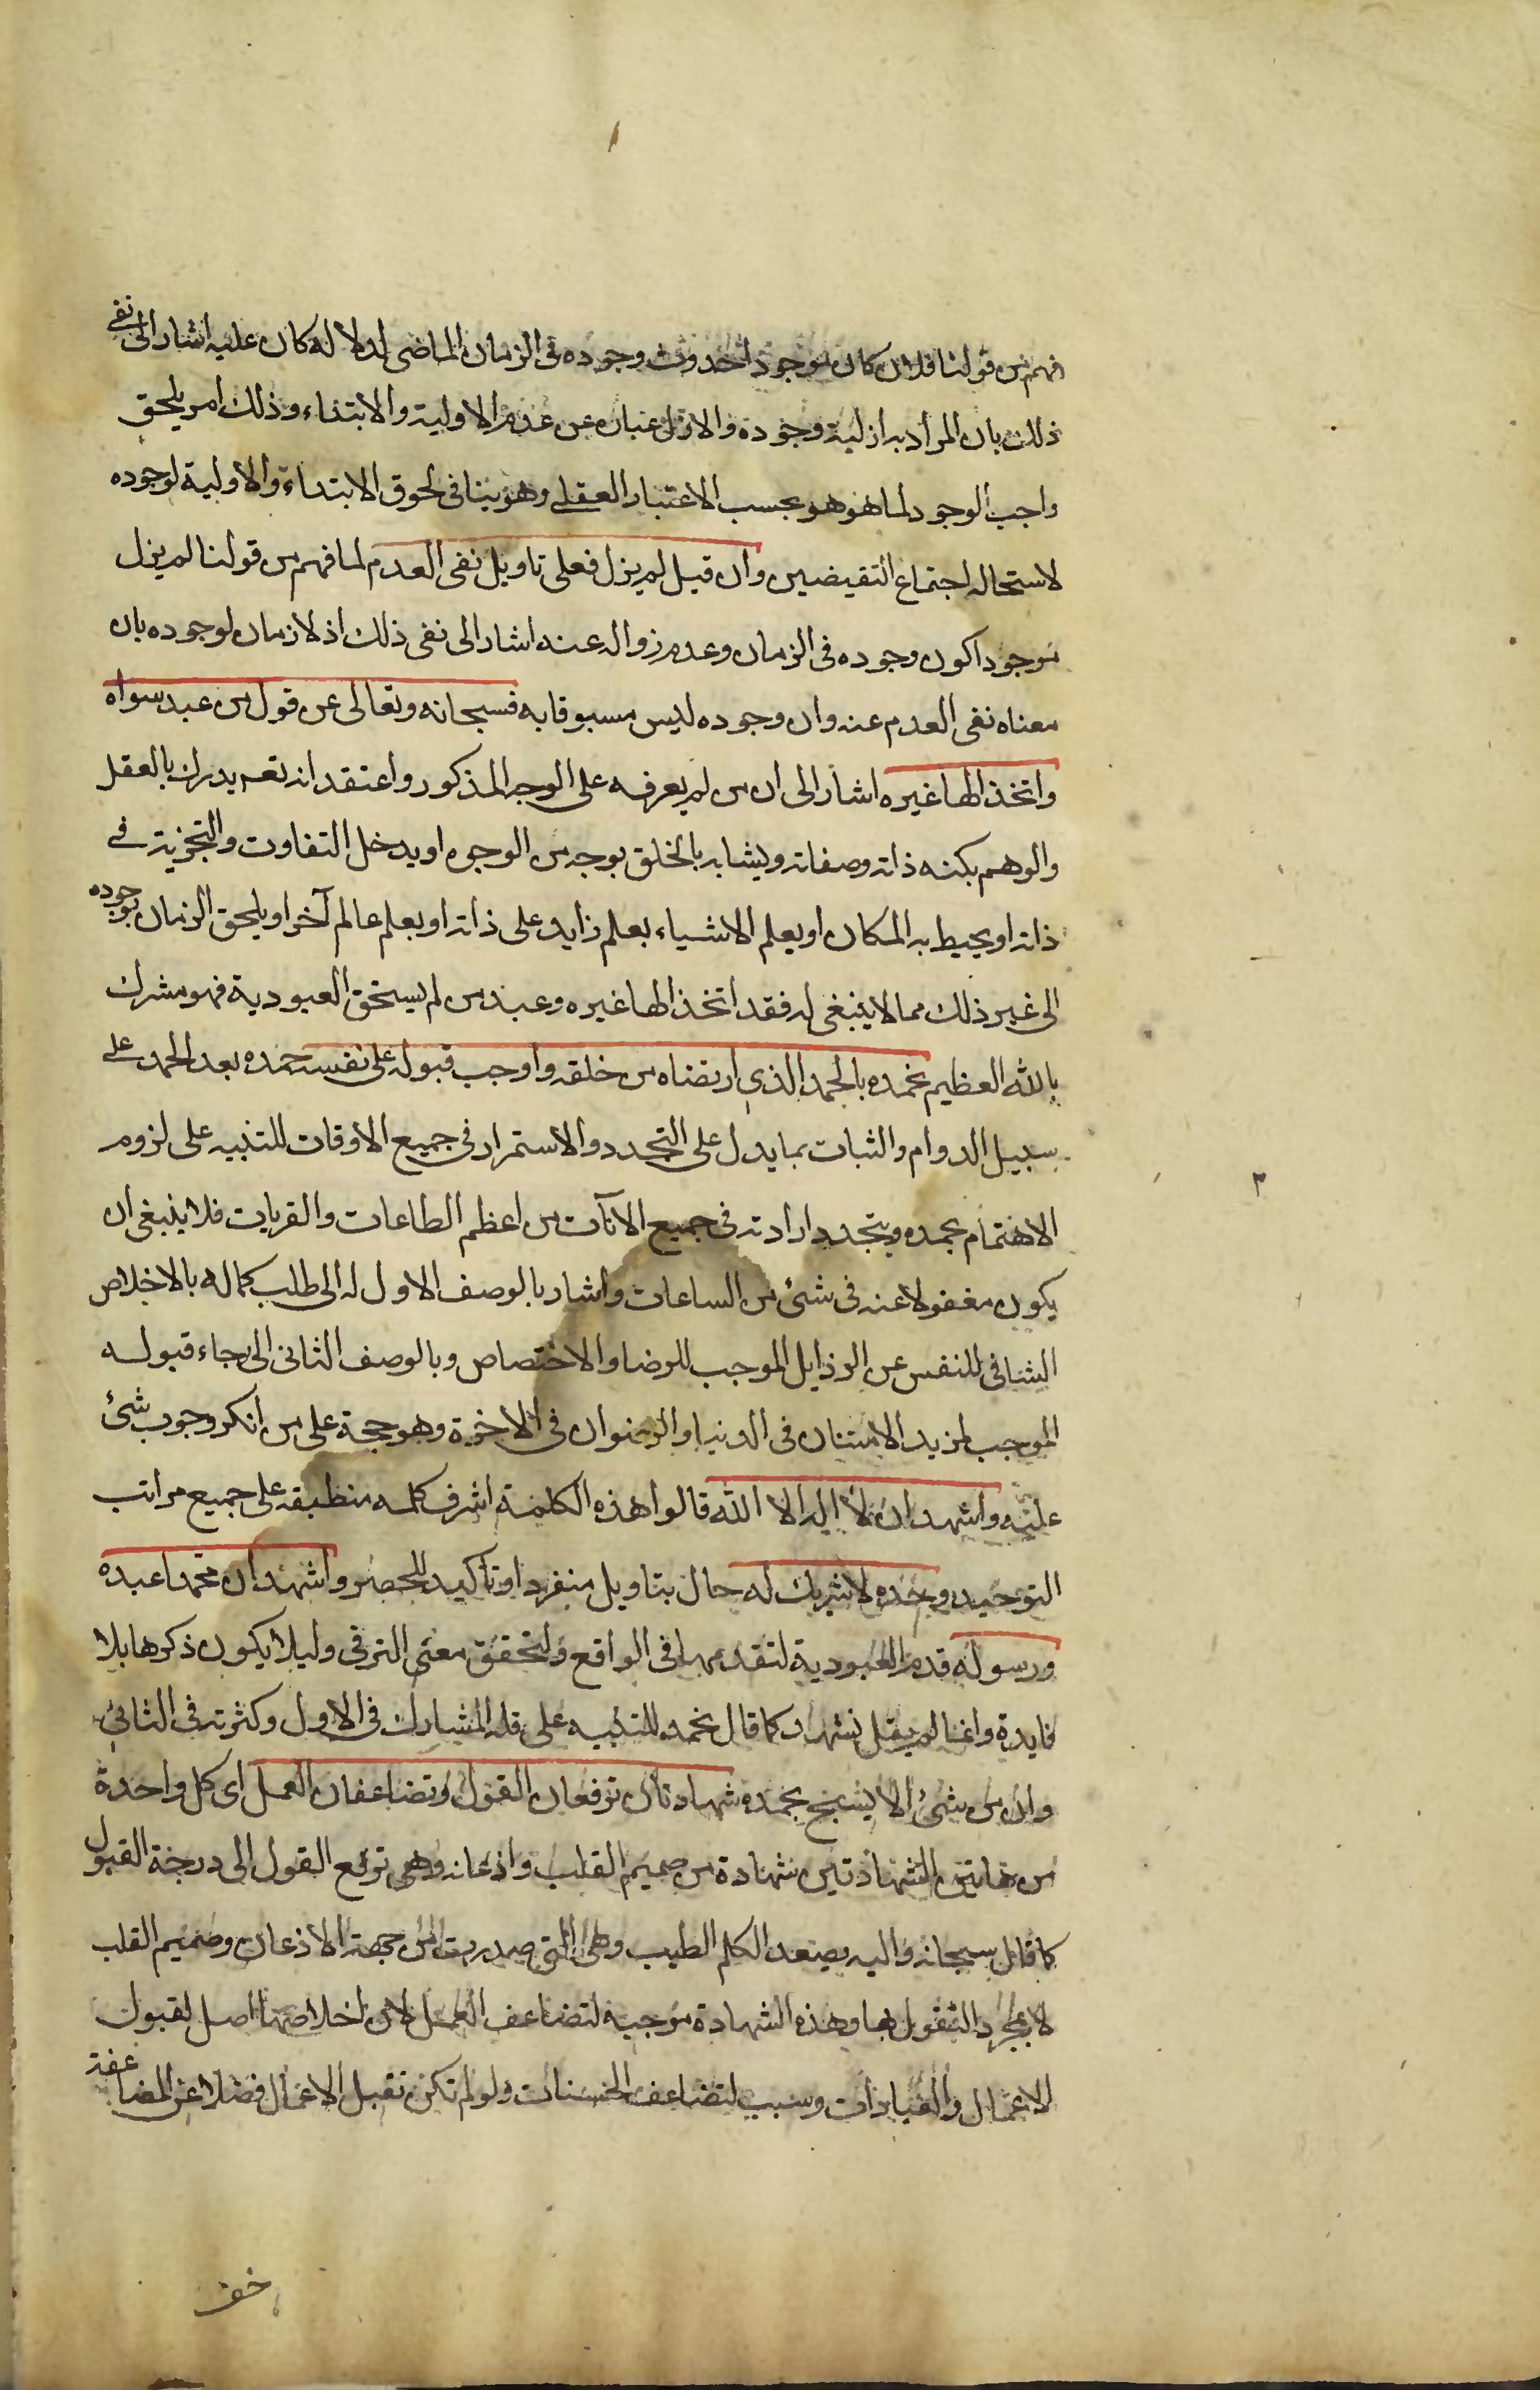 فهم من قولنا فلان كان موجودا حدوث وجوده فى الزمان الماضى لدلالة كان عليه اشار الى نفى
ذلك بان المراد به ازلية وجوده والازل عبارة عن عدم الاولية والابتداء وذلك امر يلحق
واجب الوجود لما هو هو بحسب الاعتبار العقلى وهو ينافى لحوق الابتداء والاولية لوجوده
لاستحالة اجتماع النقيضين وان قيل لم يزل فعلى تاويل نفى العدم لما فهم من قولنا لم يزل
موجودا كون وجوده فى الزمان وعدم زواله عنه اشار الى نفى ذلك اذ لا زمان لوجوده بان
معناه نفى العدم عنه وان وجوده ليس مسبوقا به فسبحانه وتعالى عن قول من عبد سواه
واتخذ الها غيره اشار الى ان من لم يعرفه على الوجه المذكور واعتقد انه تعم يدرك بالعقل
والوهم بكنه ذاته وصفاته ويشابه بالخلق بوجه من الوجوه او يدخل التفاوت والتجزية فى
ذاته او يحيط به المكان او يعلم الاشياء بعلم زايد على ذاته او بعلم عالم آخر او يلحق الزمان بوجوده
الى غير ذلك مما لا ينبغى له فقد اتخذ الها غيره وعبد من لم يستحق العبودية فهو مشرك
بالله العظيم نحمده بالحمد الذى ارتضاه من خلقه واوجب قبوله على نفسه حمده بعد الحمد على
سبيل الدوام والثبات بما يدل على التجدد والاستمرار فى جميع الاوقات للتنبيه على لزوم
الاهتمام بحمده وبتجدد ارادته فى جميع الآنات من اعظم الطاعات والقربات فلا ينبغى ان
يكون مغفولا عنه فى شئ من الساعات واشار بالوصف الاول له الى طلب كماله بالاخلاص
الشافى للنفس عن الرذايل الموجب للرضا والاختصاص وبالوصف الثانى الى رجاء قبوله
الموجب لمزيد الامتنان فى الدنيا والرضوان فى الاخرة وهو حجة على من انكر وجوب شئ
عليه واشهد ان لا اله الا الله قالوا هذه الكلمة اشرف كلمه منطبقه على جميع مراتب
التوحيد وحده لا شريك له حال بتاويل منفردا وتاكيد للحصر واشهد ان محمدا عبده
ورسوله قدم العبودية لتقدمها فى الواقع وليتحقق معنى الترقى وليلا يكون ذكرها بلا
فايدة وانما لم يقل نشهد كما قال نحمده للتنبيه على قلة المشارك فى الاول وكثرته فى الثانى
وان من شئ الا يسبح بحمده شهادتان ترفعان القول وتضاعفان العمل اى كل واحدة
من هاتين الشهادتين شهادة من صميم القلب واذعانه وهى ترفع القول الى درجة القبول
كما قال سبحانه واليه يصعد الكلم الطيب وهى التى صدرت من جهة الاذعان وصميم القلب
لا بمجرد التقول بها وهذه الشهادة موجبة لتضاعف العمل لان اخلاصها اصل لقبول
الاعمال والعبادات وسبب لتضاعف الحسنات ولو لم تكن تقبل الاعمال فضلا عن المضاعفة